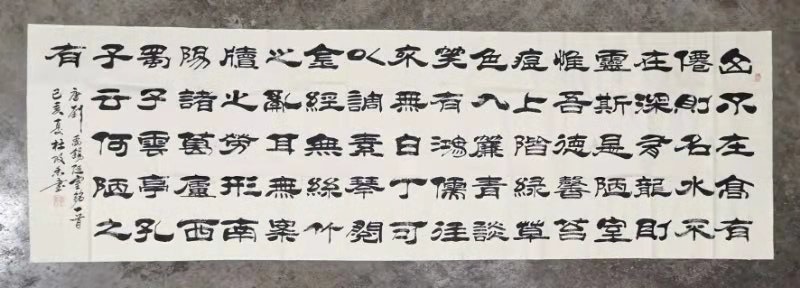 山不在高有
僊則名水不
在深有龍則
靈斯是陋室
惟吾德馨苔
痕上階綠草
色入簾青談
笑有鴻儒往
來無白丁可
以調素琴閱
金經無絲竹
之亂耳無案
牘之勞形南
陽諸葛廬西
蜀子雲亭孔
子云何陋之
有
唐劉禹錫陋室銘一首
己亥夏杜書